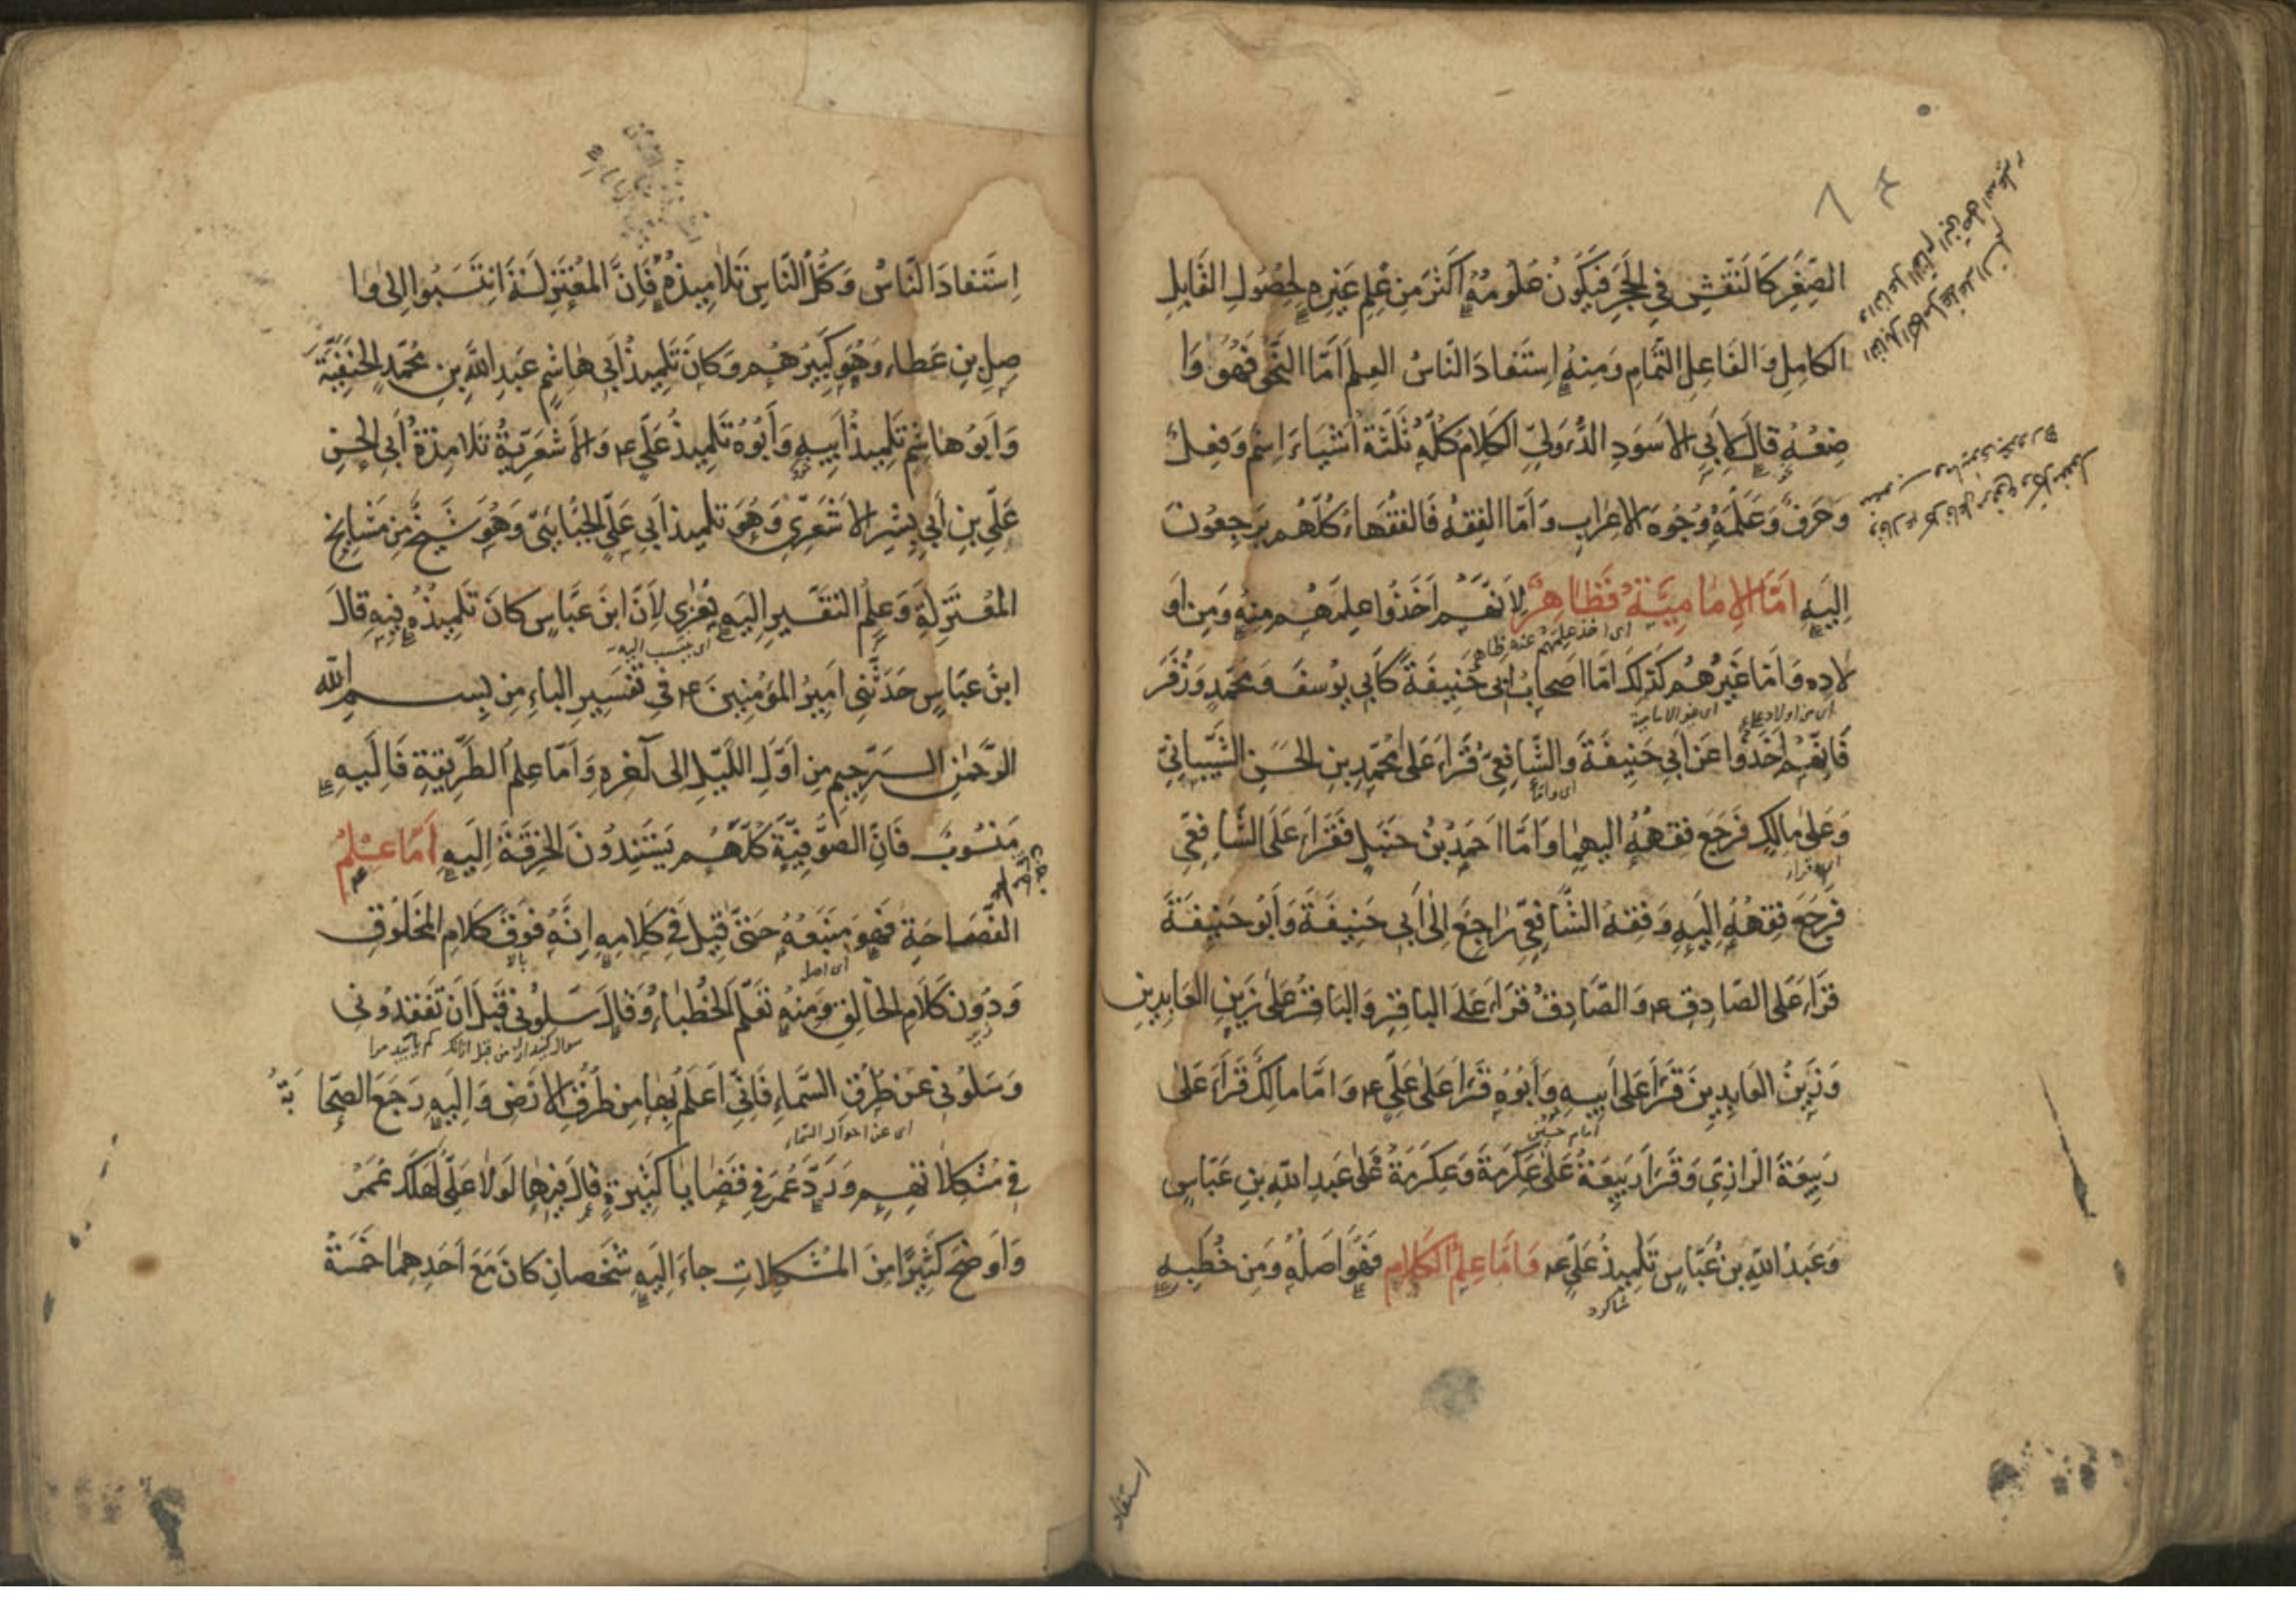 الصِّغَرِ كَالنَّقْشِ فِي الحَجَرِ فَيَكُونُ عُلُومُهُ أَكْثَرَ مِنْ عِلْمِ غَيْرِهِ لِحُصُولِ القَابِلِ
الكَامِلِ وَ الفَاعِلِ التَّمَامِ وَمِنْهُ اِسْتَفَادَ النَّاسُ العِلْمَ اَمَّا النَّحْوُ فَهُوَ وَا
ضِعُهُ قَالَ لِاَبِي الاَسْوَدِ الدُّؤَلِيِّ الكَلَامُ كُلُّهُ ثَلَثَةُ اَشْيَاءَ اِسْمٌ وَفِعْلٌ
وَحَرْفٌ وَعَلَّمَهُ وُجُوهَ الاِعْرَابِ وَ اَمَّا الفِقْهُ فَالفُقَهَاءُ كُلُّهُمْ يَرْجِعُونَ
اِلَيْهِ اَمَّا الاِمَامِيَّةُ فَظَاهِرٌ لِاَنَّهُمْ اَخَذُوا عِلْمَهُمْ مِنْهُ وَمِنْ اَوْ
اى اخذ علمهم عنه ظاهر
لَادِهِ وَ اَمَّا غَيْرُهُمْ كَذَلِكَ اَمَّا اَصْحَابُ اَبِي حَنِيفَةَ كَاَبِي يُوسُفَ وَ مُحَمَّدٍ وَ زُفَرَ
اى من اولاد على اى غير الامامية
فَاِنَّهُمْ اَخَذُوا عَنْ اَبِي حَنِيفَةَ وَالشَّافِعِيُّ قَرَاَ عَلَى مُحَمَّدِ بْنِ الحَسَنِ الشَّيْبَانِيِّ
اى واما
وَعَلَى مَالِكٍ فَرَجَعَ فِقْهُهُ اِلَيْهِمَا وَ اَمَّا اَحْمَدُ بْنُ حَنْبَلٍ فَقَرَاَ عَلَى الشَّافِعِيِّ
فَرَجَعَ فِقْهُهُ اِلَيْهِ وَ فِقْهُ الشَّافِعِيِّ رَاجِعٌ اِلَى اَبِي حَنِيفَةَ وَ اَبُو حَنِيفَةَ
قَرَاَ عَلَى الصَّادِقِ ع وَ الصَّادِقُ قَرَاَ عَلَى البَاقِرِ وَ البَاقِرُ عَلَى زَيْنِ العَابِدِينَ
وَ زَيْنُ العَابِدِينَ قَرَاَ عَلَى اَبِيهِ وَ اَبُوهُ قَرَاَ عَلَى عَلِيٍّ ع وَ اَمَّا مَالِكٌ قَرَاَ عَلَى
امام حسين
رَبِيعَةَ الرَّازِي وَ قَرَاَ رَبِيعَةُ عَلَى عِكْرِمَةَ وَ عِكْرِمَةُ عَلَى عَبْدِ اللهِ بْنِ عَبَّاسٍ
وَ عَبْدُ اللهِ بْنُ عَبَّاسٍ تِلْمِيذُ عَلِيٍّ ع وَ اَمَّا عِلْمُ الكَلَامِ فَهُوَ اَصْلُهُ وَمِنْ خُطَبِهِ
شاكرد
استفاد
اِسْتَفَادَ النَّاسُ وَ كُلُّ النَّاسِ تَلَامِيذُهُ فَاِنَّ المُعْتَزِلَةَ انْتَسَبُوا اِلَى وَا
صِلِ بْنِ عَطَاءٍ وَهُوَ كَبِيرُهُمْ وَ كَانَ تِلْمِيذَ اَبِي هَاشِمٍ عَبْدِ اللهِ بْنِ مُحَمَّدِ الحَنَفِيَّةِ
وَ اَبُو هَاشِمٍ تِلْمِيذُ اَبِيهِ وَ اَبُوهُ تِلْمِيذُ عَلِيٍّ ع وَ الاَشْعَرِيَّةُ تَلَامِذَةُ اَبِي الحَسَنِ
عَلِيِّ بْنِ اَبِي بِشْرِ الاَشْعَرِيِّ وَهُوَ تِلْمِيذُ اَبِي عَلِيٍّ الجُبَّائِيِّ وَهُوَ شَيْخٌ مِنْ مَشَايِخِ
المُعْتَزِلَةِ وَ عِلْمُ التَّفْسِيرِ اِلَيْهِ يُعْزَى لِاَنَّ ابْنَ عَبَّاسٍ كَانَ تِلْمِيذَهُ فِيهِ قَالَ
اى ينسب اليه
ابْنُ عَبَّاسٍ حَدَّثَنِي اَمِيرُ المُؤْمِنِينَ ع فِي تَفْسِيرِ البَاءِ مِنْ بِسْمِ اللهِ
الرَّحْمَنِ الرَّحِيمِ مِنْ اَوَّلِ اللَّيْلِ اِلَى آخِرِهِ وَ اَمَّا عِلْمُ الطَّرِيقَةِ فَاِلَيْهِ
مَنْسُوبٌ فَاِنَّ الصُّوفِيَّةَ كُلَّهُمْ يَسْتَنِدُونَ الخِرْقَةَ اِلَيْهِ اَمَّا عِلْمُ
الفَصَاحَةِ فَهُوَ مَنْبَعُهُ حَتَّى قِيلَ فِي كَلَامِهِ اِنَّهُ فَوْقَ كَلَامِ المَخْلُوقِ
اى اصله بالا
وَ دُونَ كَلَامِ الخَالِقِ وَمِنْهُ تَعَلَّمَ الخُطَبَاءُ وَ قَالَ سَلُونِي قَبْلَ اَنْ تَفْقِدُونِي
زير
وَ سَلُونِي عَنْ طُرُقِ السَّمَاءِ فَاِنِّي اَعْلَمُ بِهَا مِنْ طُرُقِ الاَرْضِ وَ اِلَيْهِ رَجَعَ الصَّحَا بَةُ
اى عن احوال السماء
فِي مُشْكِلَاتِهِمْ وَ رَدَّ عُمَرَ فِي قَضَايَا كَثِيرَةٍ قَالَ فِيهَا لَوْلَا عَلِيٌّ لَهَلَكَ عُمَرُ
وَ اَوْضَحَ كَثِيرًا مِنَ المُشْكِلَاتِ جَاءَ اِلَيْهِ شَخْصَانِ كَانَ مَعَ اَحَدِهِمَا خَمْسَةُ